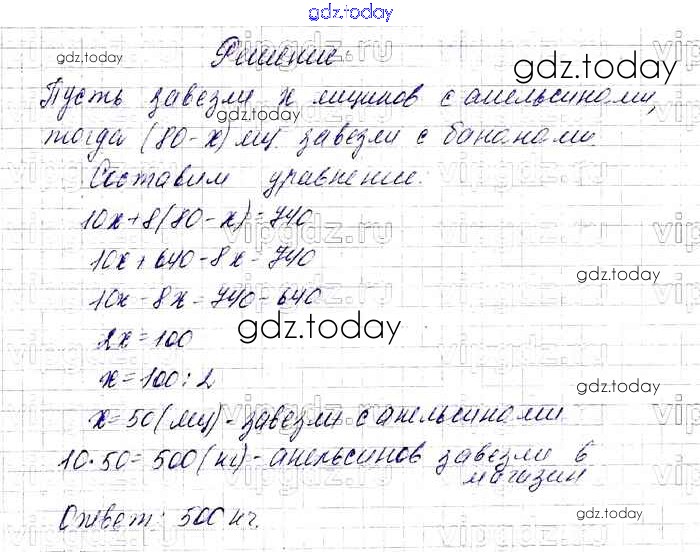 gdz.today
Решение
gdz.today
gdz.today
Пусть завезли x ящиков с апельсинами,
gdz.today
тогда (80-x) ящ. завезли с бананами.
Составим уравнение:
10x+8(80-x)=740
vipgdz.ru
10x+640-8x=740
gdz.today
10x-8x=740-640
gdz.today
2x=100
x=100:2
gdz.today
x=50(ящ)-завезли с апельсинами
10·50=500(кг)-апельсинов завезли в
магазин
Ответ: 500 кг.
gdz.today